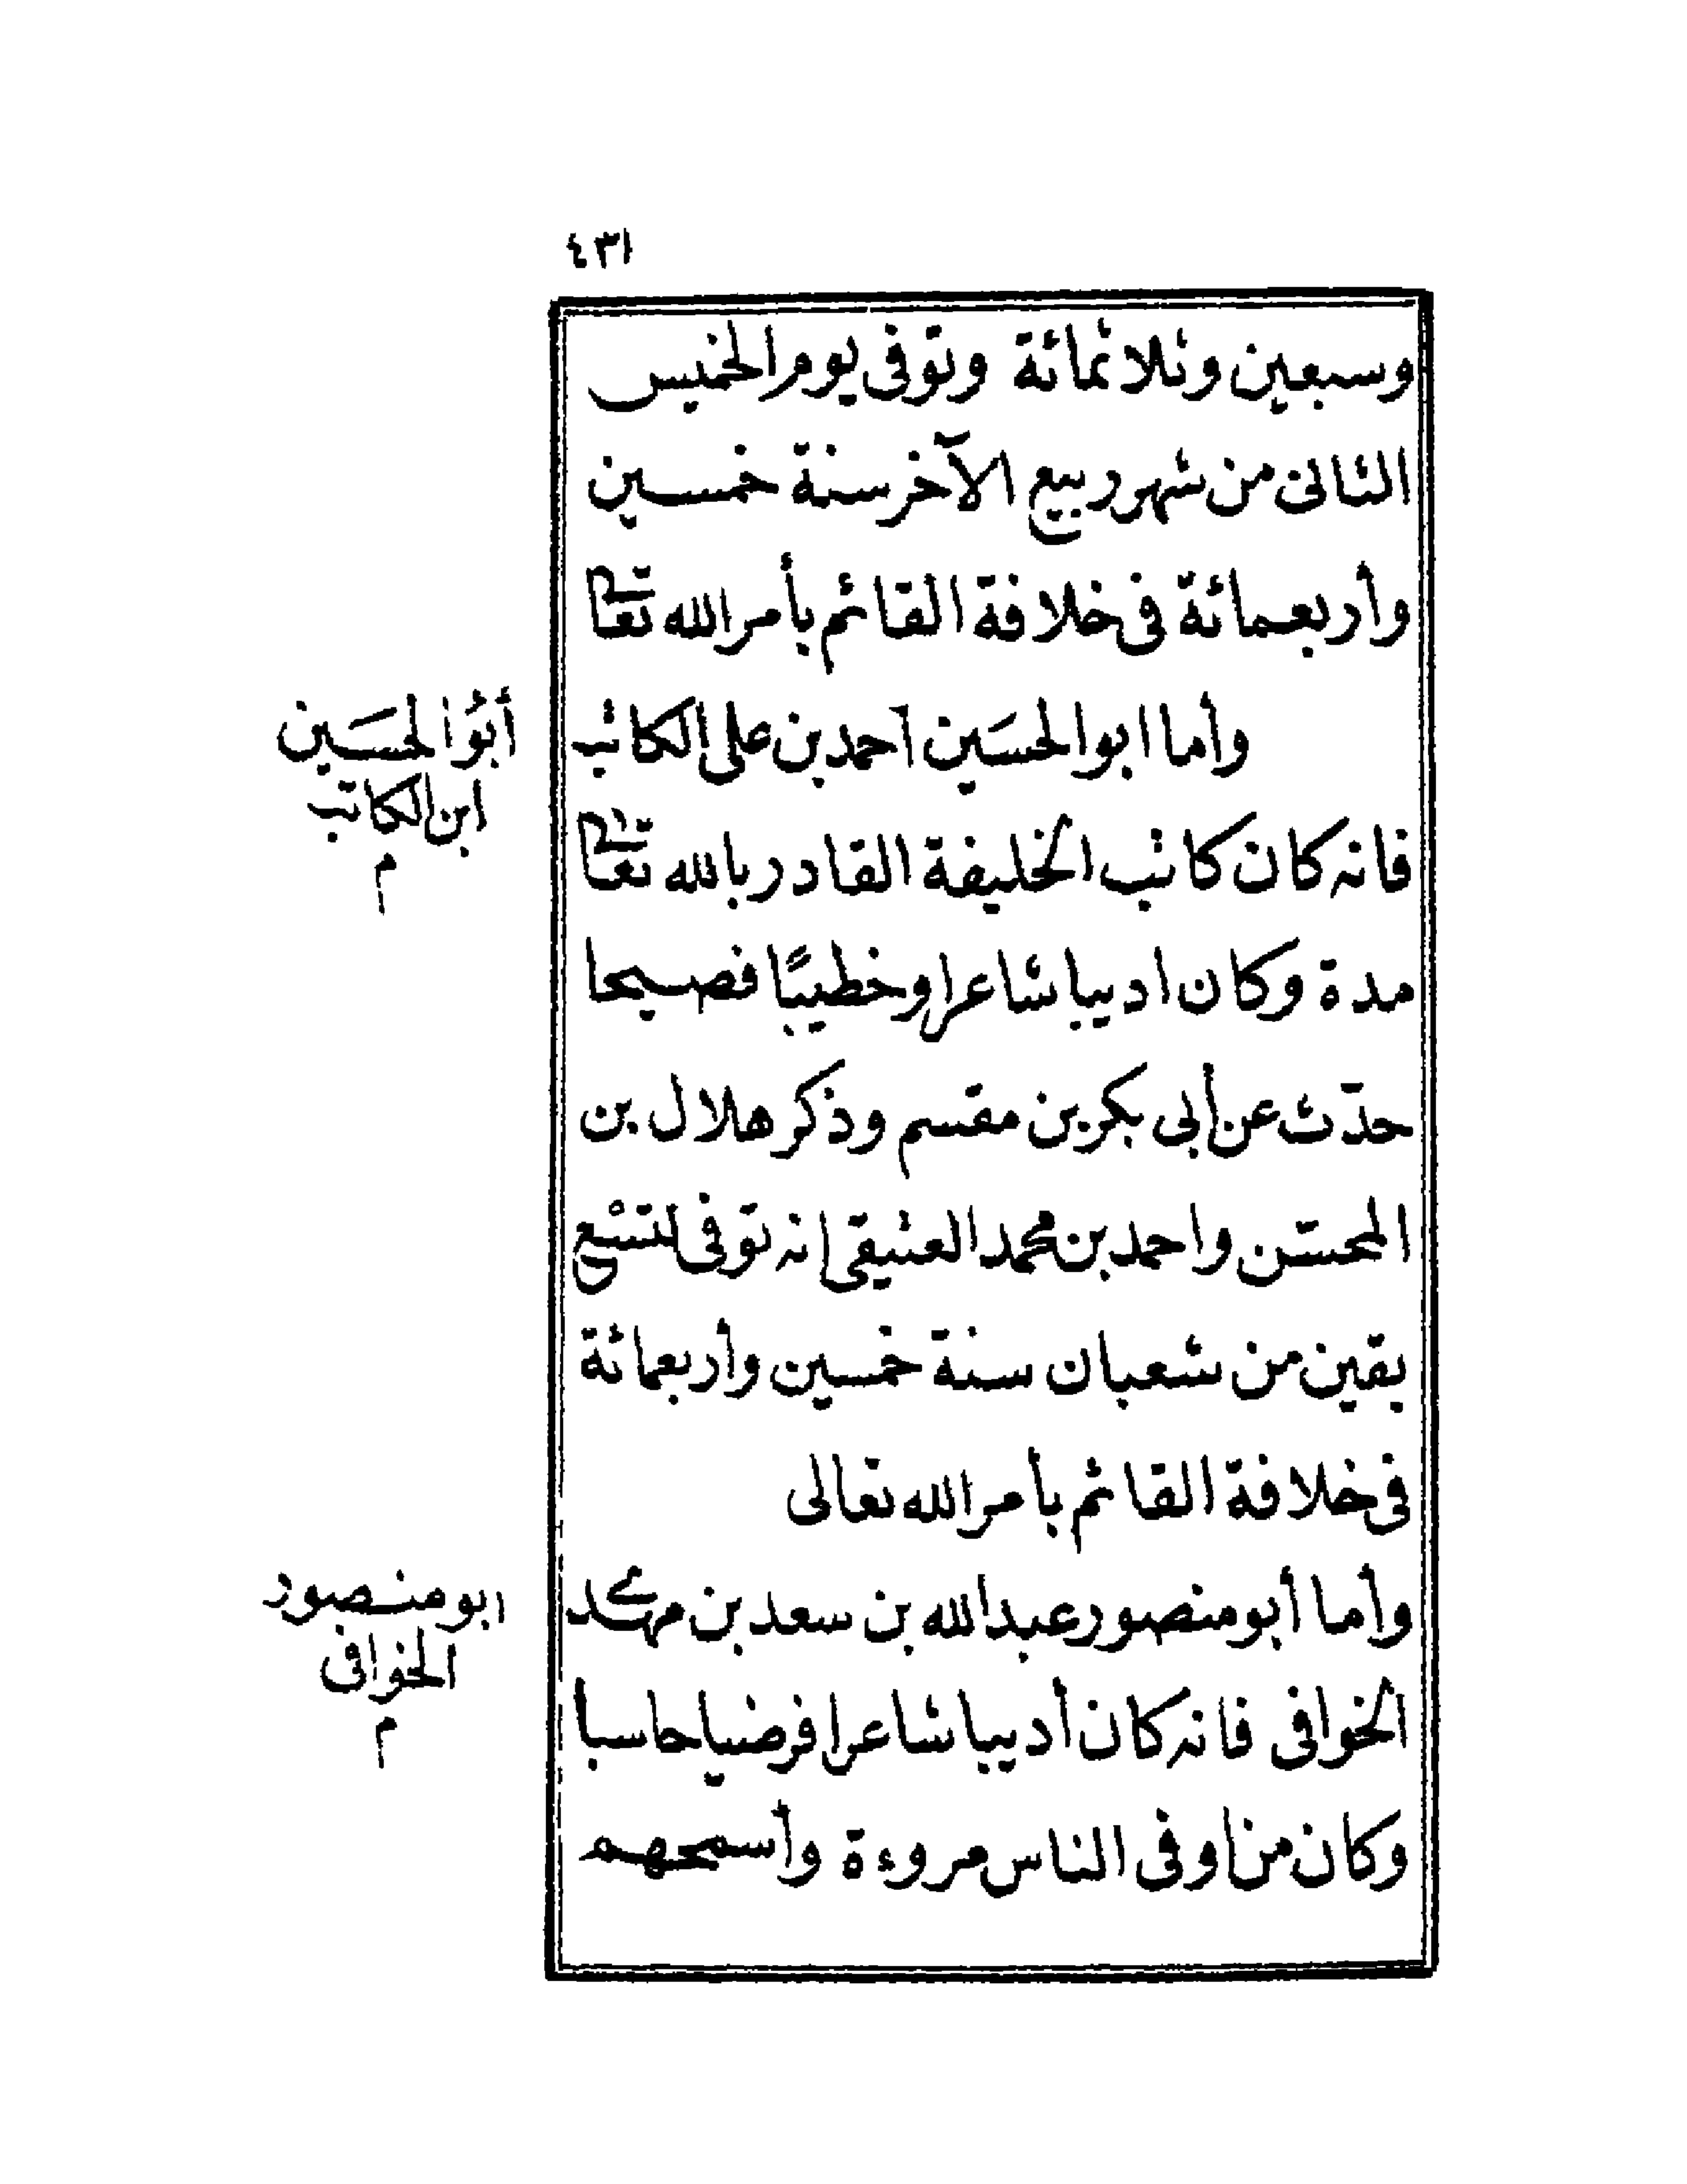 ٤٣١
وسبعين وثلاثمائة وتوفى يوم الخميس
الثانى من شهر ربيع الآخر سنة خمسين
وأربعمائة فى خلافة القائم بأمر الله تعالى
وأما ابو الحسَين احمد بن على الكاتب
أبُو الحسَين
ابن الكاتب
م
فانه كان كاتب الخليفة القادر بالله تعالى
مدة وكان اديبا شاعرا وخطيبًا فصيحا
حدّث عن أبى بكر بن مقسم وذكر هلال بن
المحسّن واحمد بن محمد العتيقى إنه توفى لتسْع
بقين من شعبان سنة خمسين وأربعمائة
فى خلافة القائم بأمر الله تعالى
وأما أبو منصور عبد الله بن سعد بن مهدى
ابو منصور
الخوافى
م
الخوافى فانه كان أديبا شاعرا فرضيا حاسبا
وكان من أوفى الناس مروءة وأسمحهم